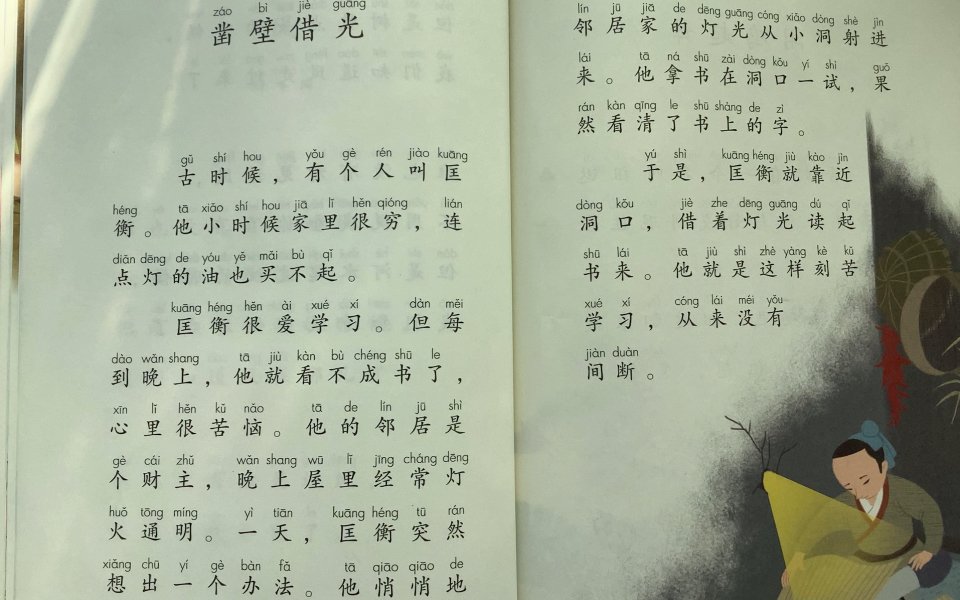 záo bì jiè guāng
凿壁借光
gǔ shí hou yǒu gè rén jiào kuāng
古时候，有个人叫匡
héng tā xiǎo shí hou jiā lǐ hěn qióng lián
衡。他小时候家里很穷，连
diǎn dēng de yóu yě mǎi bù qǐ
点灯的油也买不起。
kuāng héng hěn ài xué xí dàn měi
匡衡很爱学习。但每
dào wǎn shang tā jiù kàn bù chéng shū le
到晚上，他就看不成书了，
xīn lǐ hěn kǔ nǎo tā de lín jū shì
心里很苦恼。他的邻居是
gè cái zhǔ wǎn shang wū lǐ jīng cháng dēng
个财主，晚上屋里经常灯
huǒ tōng míng yì tiān kuāng héng tū rán
火通明。一天，匡衡突然
xiǎng chū yí gè bàn fǎ tā qiāo qiāo de
想出一个办法。他悄悄地
lín jū jiā de dēng guāng cóng xiǎo dòng shè jìn
邻居家的灯光从小洞射进
lái tā ná shū zài dòng kǒu yí shì guǒ
来。他拿书在洞口一试，果
rán kàn qīng le shū shàng de zì
然看清了书上的字。
yú shì kuāng héng jiù kào jìn
于是，匡衡就靠近
dòng kǒu jiè zhe dēng guāng dú qǐ
洞口，借着灯光读起
shū lái tā jiù shì zhè yàng kè kǔ
书来。他就是这样刻苦
xué xí cóng lái méi yǒu
学习，从来没有
jiàn duàn
间断。